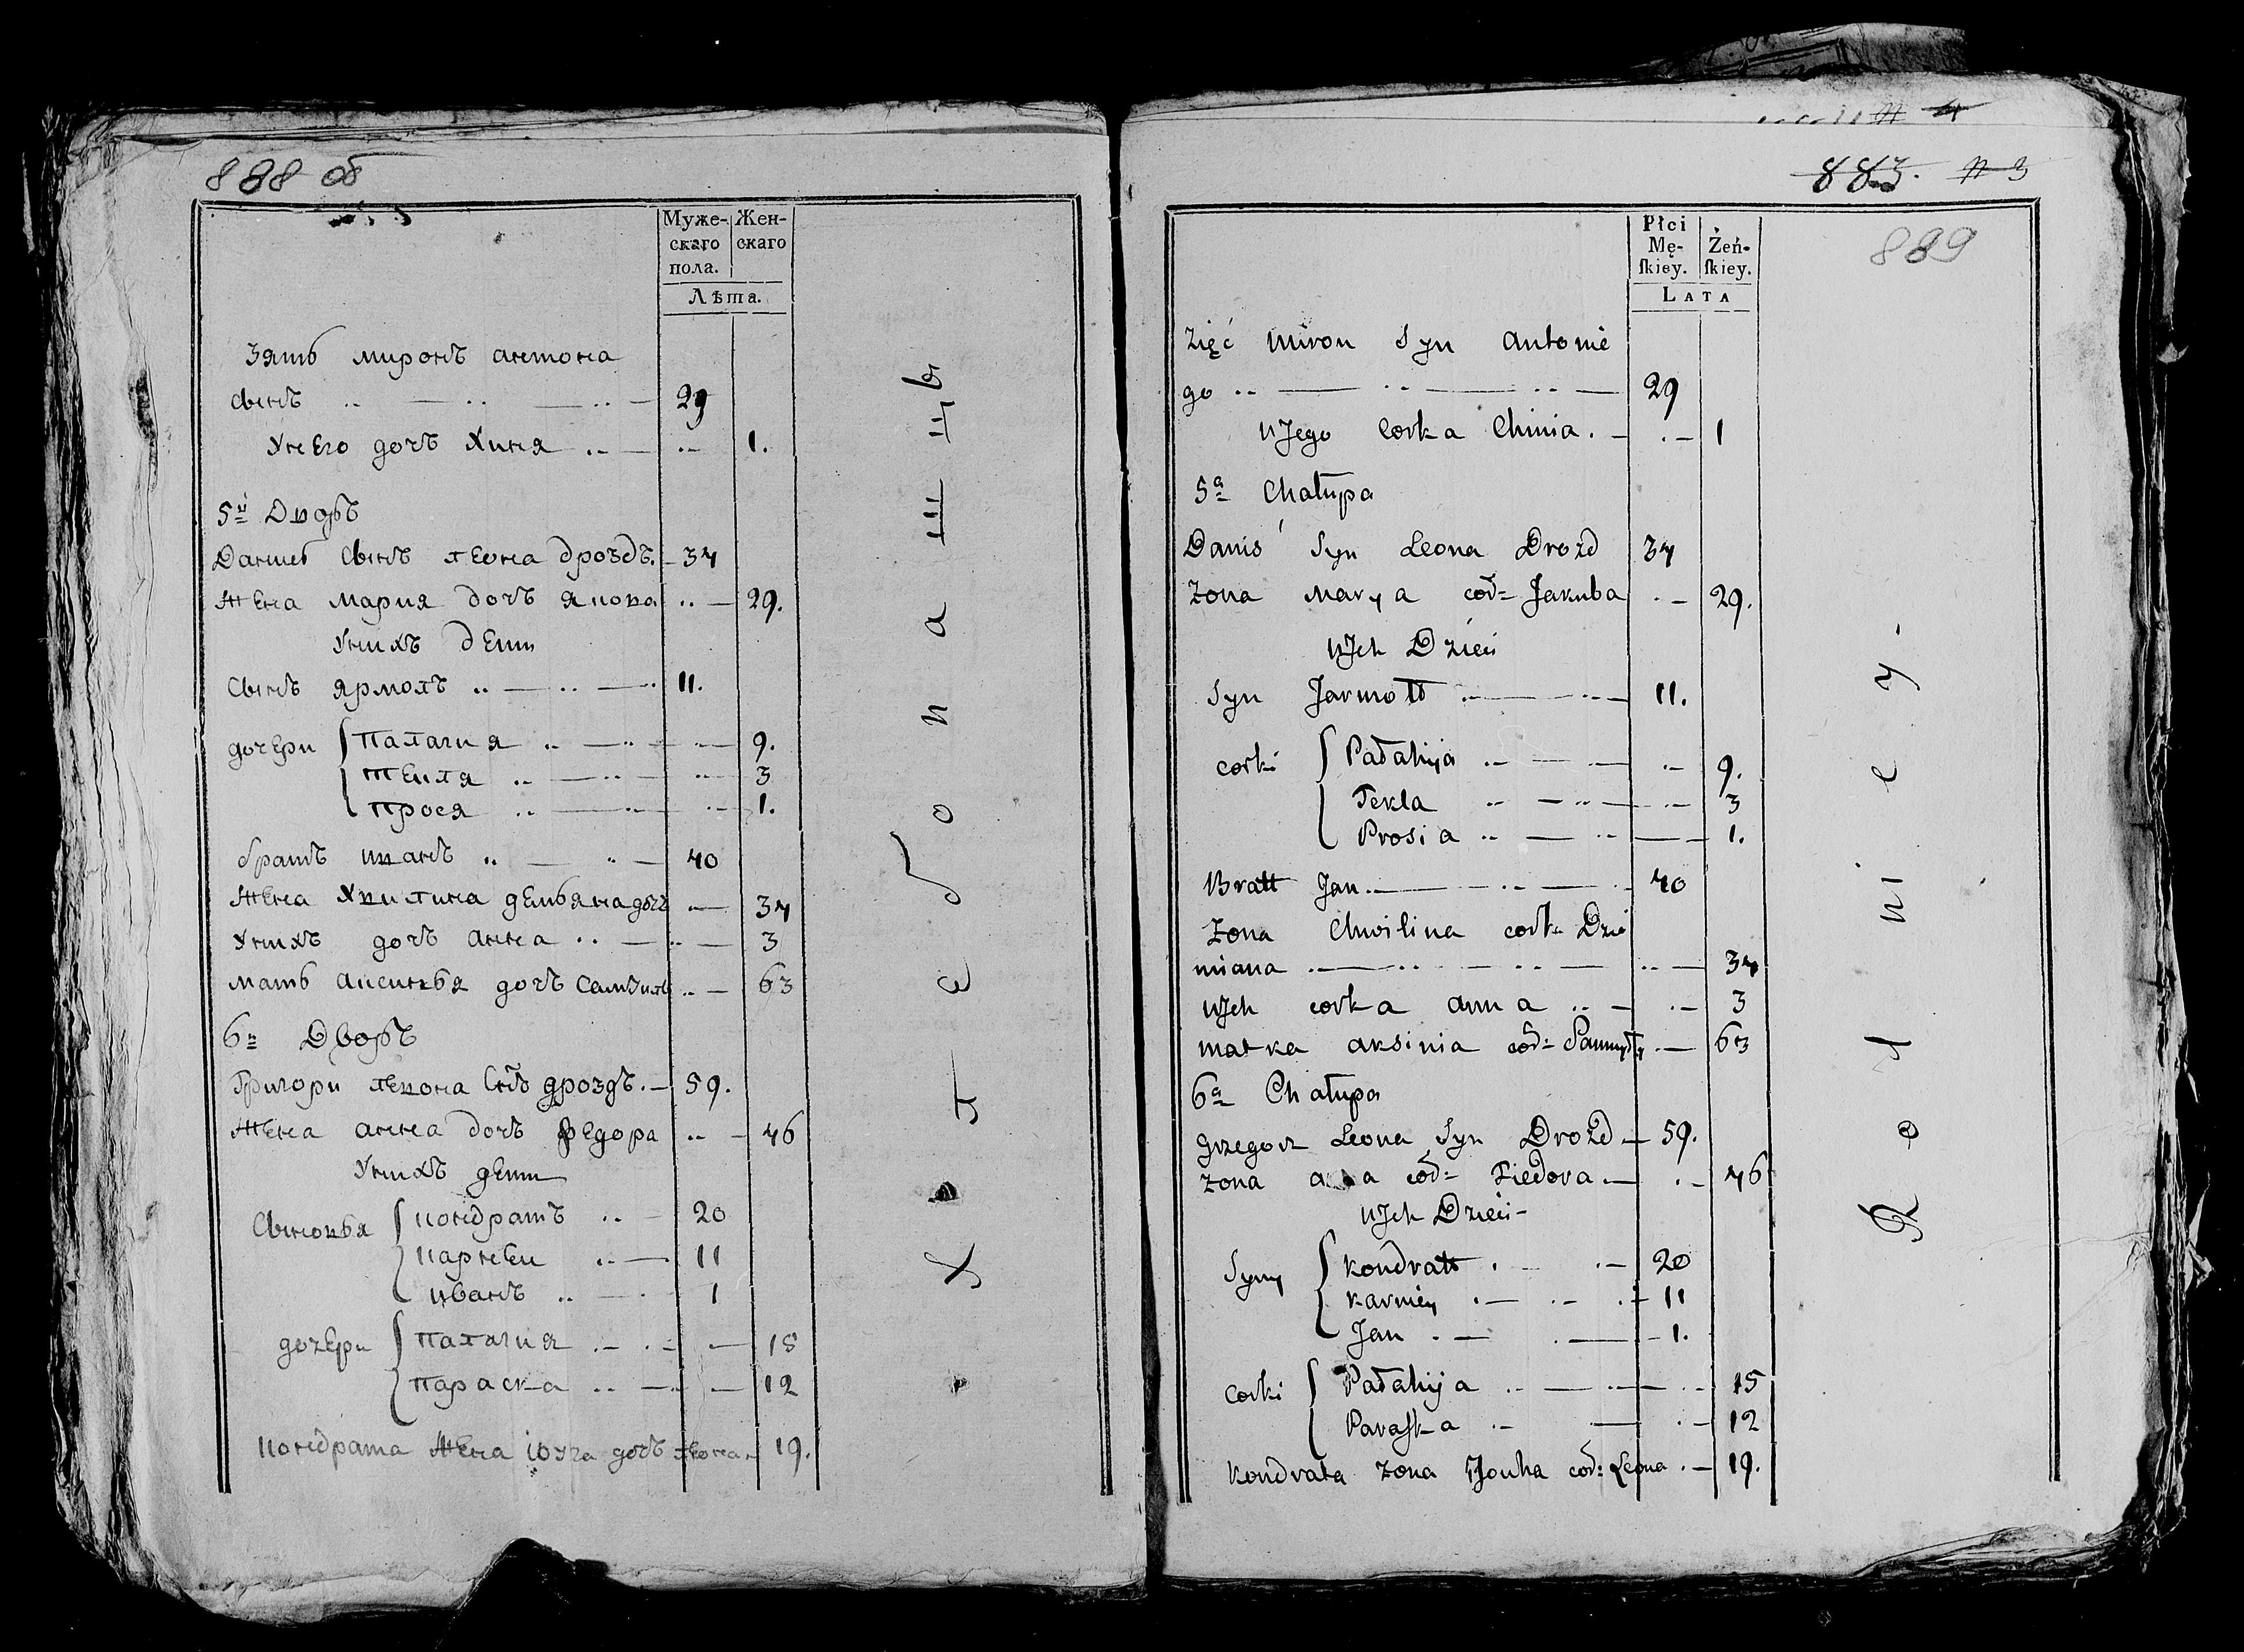 888 об
Муже- Жен-
скаго скаго
пола.
Лѣта.
Зять миронъ антона
сынъ .. — .. — .. — 29
Унего дочъ Хиня .. — .. — 1.
5й Дворъ
Данись сынъ леона дроздъ. — 34
Жена Мария дочъ якова .. — 29.
Унихъ дети
Сынъ ярмолъ .. — .. — . 11.
дочери Палагия .. — .. — .. — 9.
текля .. — .. — .. — 3
прося .. — .. — .. — 1.
братъ иванъ .. — .. — 40
Жена Хвилина демьяна дочъ .. — 34
Унихъ дочъ анна .. — .. — 3
мать аксинья дочъ Самуилы .. — 63
6й Дворъ
Григори левона Снъ дроздъ. — 59.
Жена анна дочъ федора .. — 46
Унихъ дети
Сыновья кондратъ .. — 20
карней .. — 11
иванъ .. — . 1
дочери палагия . — . — . — 15
параска .. — .. — 12
кондрата Жена юуга дочъ леона — 19.
Хлебопашцъ
883. N 3
889
Płci
Mę- Żeń-
ſkiey. ſkiey.
LATA
Zięć Miron Syn Antonie
go .. — .. — .. — 29
uJego Corka Chinia. — . — 1
5a Chałupa
Daniś Syn Leona Drozd 34
Zona Marya cod= Jakuba . — 29.
uJch Dzieci
Syn Jarmołł .. — .. — 11.
corki Pałahija .. — — .. — 9.
Tekla .. — .. — .. — 3
Prosia .. — .. — — 1.
Bratt Jan. — .. — .. 40
Zona Chwilina cork= Dzie
miana .. — .. — .. — .. — 34
uJch corka anna .. — . — 3
matka aksinia cod= Samuyły . — 63
6a Chałupa
Grzegorz Leona Syn Drozd — 59.
Zona a a cod= Fiedora. — . — 46
uJch Dzieci —
Syny kondratt . — . — 20
karniey . — .. — . — 11
Jan . — . — — 1.
Corki Pałahija .. — .. — .. — 15
Paraſka .. — — . — 12
Kondrata zona Jouha cod: Leona . — 19.
Rolniey-